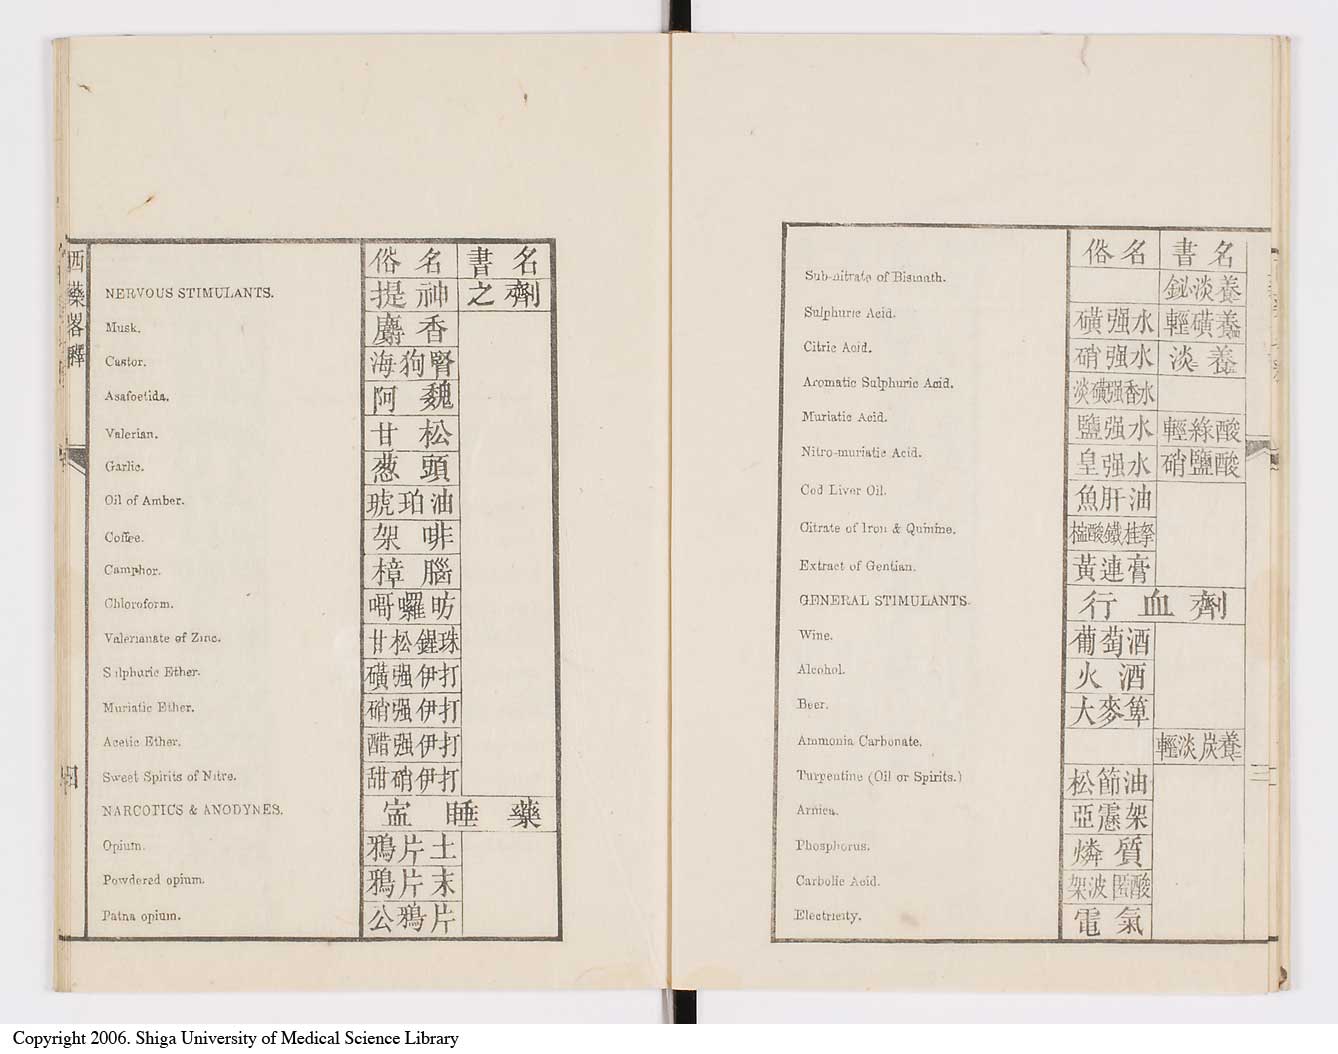 俗名 書名
Sub-nitrate of Bismuth. 鉍淡養
Sulphuric Acid. 磺强水 輕磺養
Citric Acid. 硝强水 淡養
Aromatic Sulphuric Acid. 淡磺强香水
Muriatic Acid. 鹽强水 輕綠酸
Nitro-muriatic Acid. 皇强水 硝鹽酸
Cod Liver Oil. 魚肝油
Citrate of Iron & Quinine.
Extract of Gentian. 黃連膏
GENERAL STIMULANTS. 行血劑
Wine. 葡萄酒
Alcohol. 火酒
Beer. 大麥箄
Ammonia Carbonate. 輕淡炭養
Turpentine (Oil or Spirits.) 松節油
Arnica.
Phosphorus. 燐質
Carbolic Acid. 架波匿酸
Electricity. 電氣
三
俗名 書名
NERVOUS STIMULANTS. 提神之劑
Musk. 麝香
Castor. 海狗腎
Asafoetida. 阿魏
Valerian. 甘松
Garlic. 葱頭
Oil of Amber. 琥珀油
Coffee. 架啡
Camphor. 樟腦
Chloroform. 嗬囉昉
Valerianate of Zinc. 甘松鋅珠
Sulphuric Ether. 磺强伊打
Muriatic Ether. 硝强伊打
Acetic Ether. 醋强伊打
Sweet Spirits of Nitre. 甜硝伊打
NARCOTICS & ANODYNES. 寍睡藥
Opium. 鴉片土
Powdered opium. 鴉片末
Patna opium. 公鴉片
西藥畧釋
四
Copyright 2006. Shiga University of Medical Science Library